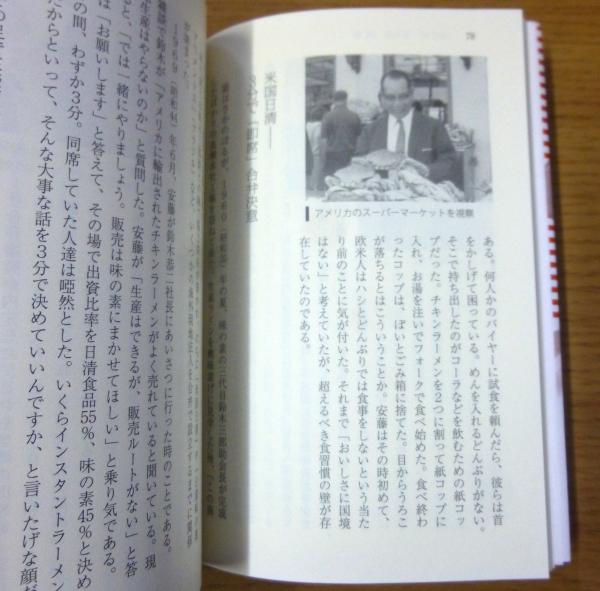 78
アメリカのスーパーマーケットを視察
ある。何人かのバイヤーに試食を頼んだら、彼らは首
をかしげて困っている。めんを入れるどんぶりがない。
そこで持ち出したのがコーラなどを飲むための紙コッ
プだった。チキンラーメンを2つに割って紙コップに
入れ、お湯を注いでフォークで食べ始めた。食べ終わ
ったコップは、ぽいとごみ箱に捨てた。目からうろこ
が落ちるとはこういうことか。安藤はその時初めて、
欧米人はハシとどんぶりでは食事をしないという当た
り前のことに気が付いた。それまで「おいしさに国境
はない」と考えていたが、超えるべき食習慣の壁が存
在していたのである。
米国日清――
3分で「即席」合弁決意
年の夏、味の素の三代目鈴木三郎助会長が完成
1969(昭和44)年6月、安藤が鈴木恭二社長にあいさつに行った時のことである。
雑談で鈴木が「アメリカに輸出されたチキンラーメンがよく売れていると聞いている。現
生産はやらないのか」と質問した。安藤が「生産はできるが、販売ルートがない」と答
ると、「では一緒にやりましょう。販売は味の素にまかせてほしい」と乗り気である。
は「お願いします」と答えて、その場で出資比率を日清食品55%、味の素45%と決め
の間、わずか3分。同席していた人達は啞然とした。いくらインスタントラーメン
だからといって、そんな大事な話を3分で決めていいんですか、と言いたげな顔だ